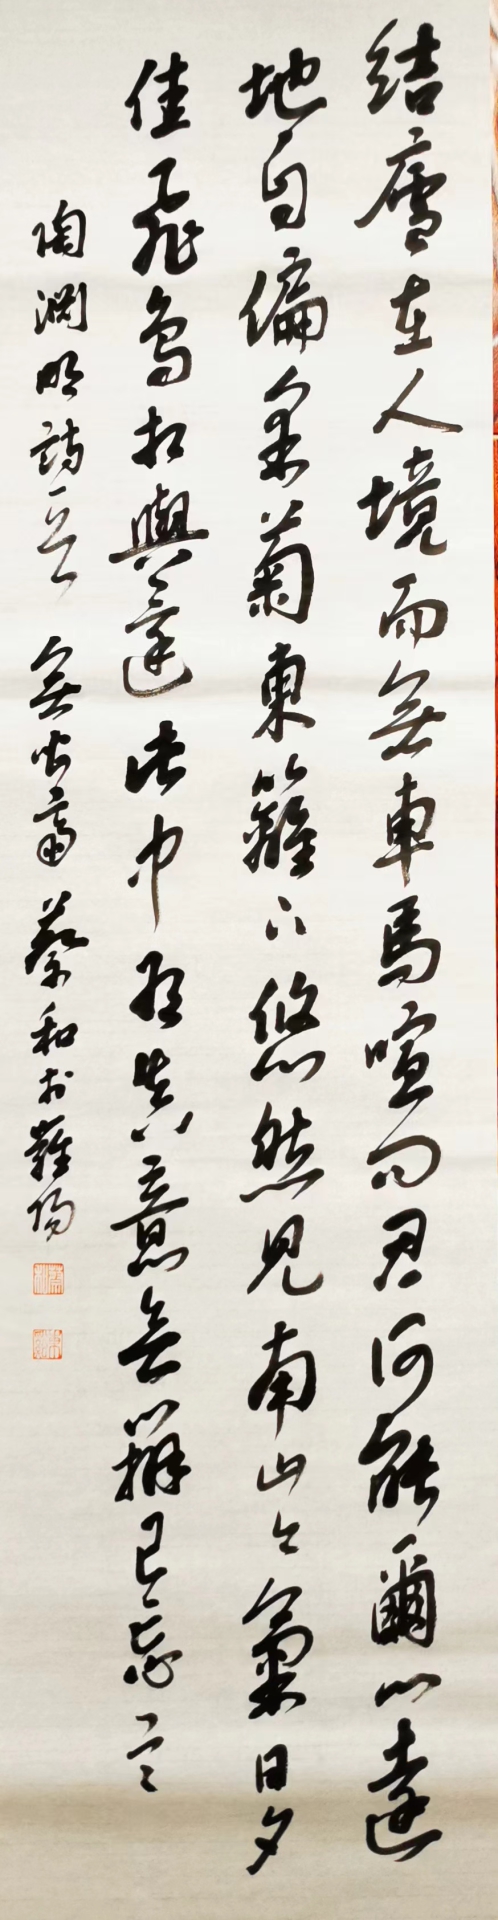 結廬在人境而無車馬喧問君何能爾心遠
地自偏采菊東籬下悠然見南山々氣日夕
佳飛鳥相與還此中有真意無辨已忘言
陶淵明詩一首 無齋蔡和於蘿陽